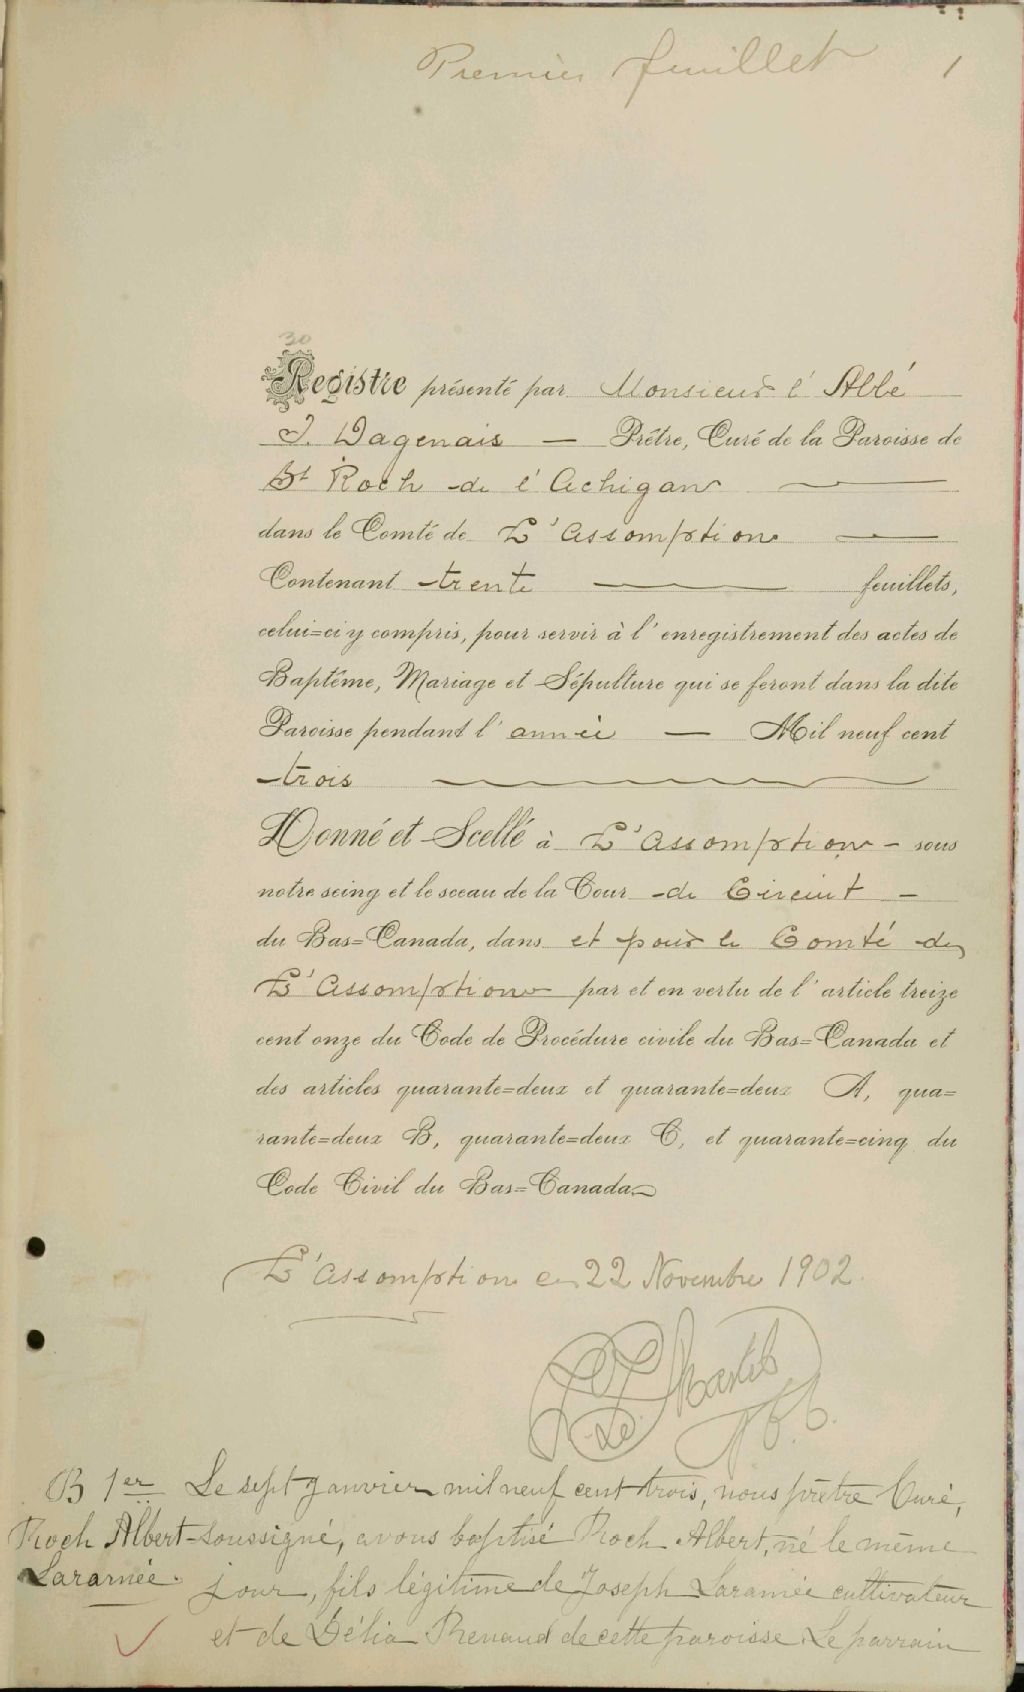 Premier feuillet 1
30
Registre présenté par Monsieur l'Abbé
J. Dagenais — Prêtre, Curé de la Paroisse de
St Roch de l'Achigan
dans le Comté de L'Assomption
Contenant trente feuillets,
celui=ci y compris, pour servir à l'enregistrement des actes de
Baptême, Mariage et Sépulture qui se feront dans la dite
Paroisse pendant l'année — Mil neuf cent
trois
Donné et Scellé à L'Assomption – sous
notre seing et le sceau de la Cour de Circuit –
du Bas=Canada, dans et pour le Comté de
L'Assomption par et en vertu de l'article treize
cent onze du Code de Procédure civile du Bas=Canada et
des articles quarante=deux et quarante=deux A, qua=
rante=deux B, quarante=deux C, et quarante=cinq du
Code Civil du Bas=Canada
L'Assomption ce 22 Novembre 1902.
B 1er Le sept Janvier mil neuf cent trois, nous prêtre Curé,
Roch Albert soussigné, avons baptisé Roch Albert, né le même
Laramée. jour, fils légitime de Joseph Laramée cultivateur
et de Délia Renaud de cette paroisse. Le parrain